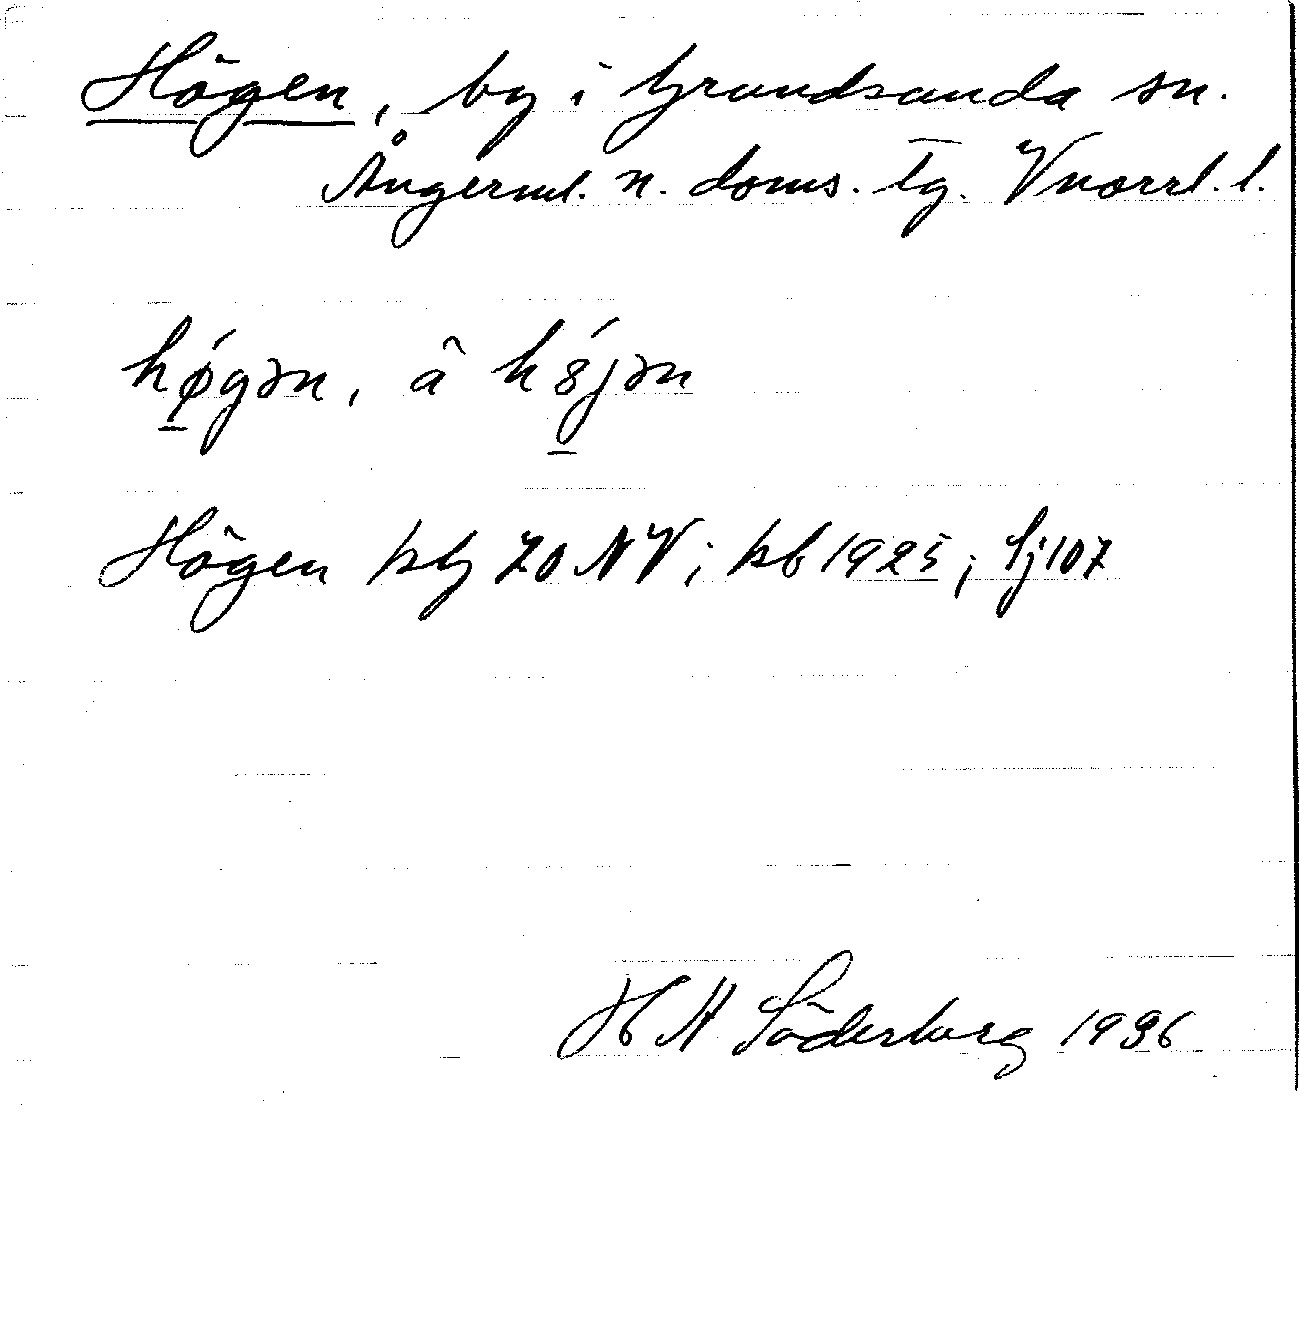 Högen, by i Grundsunda sn.
Ångerml. n. doms. tg. Vnorrl. l.
hǿgən, â hǿjən
Högen kbg 70 NV; kb 1925; Sj 107
H H Söderberg 1936